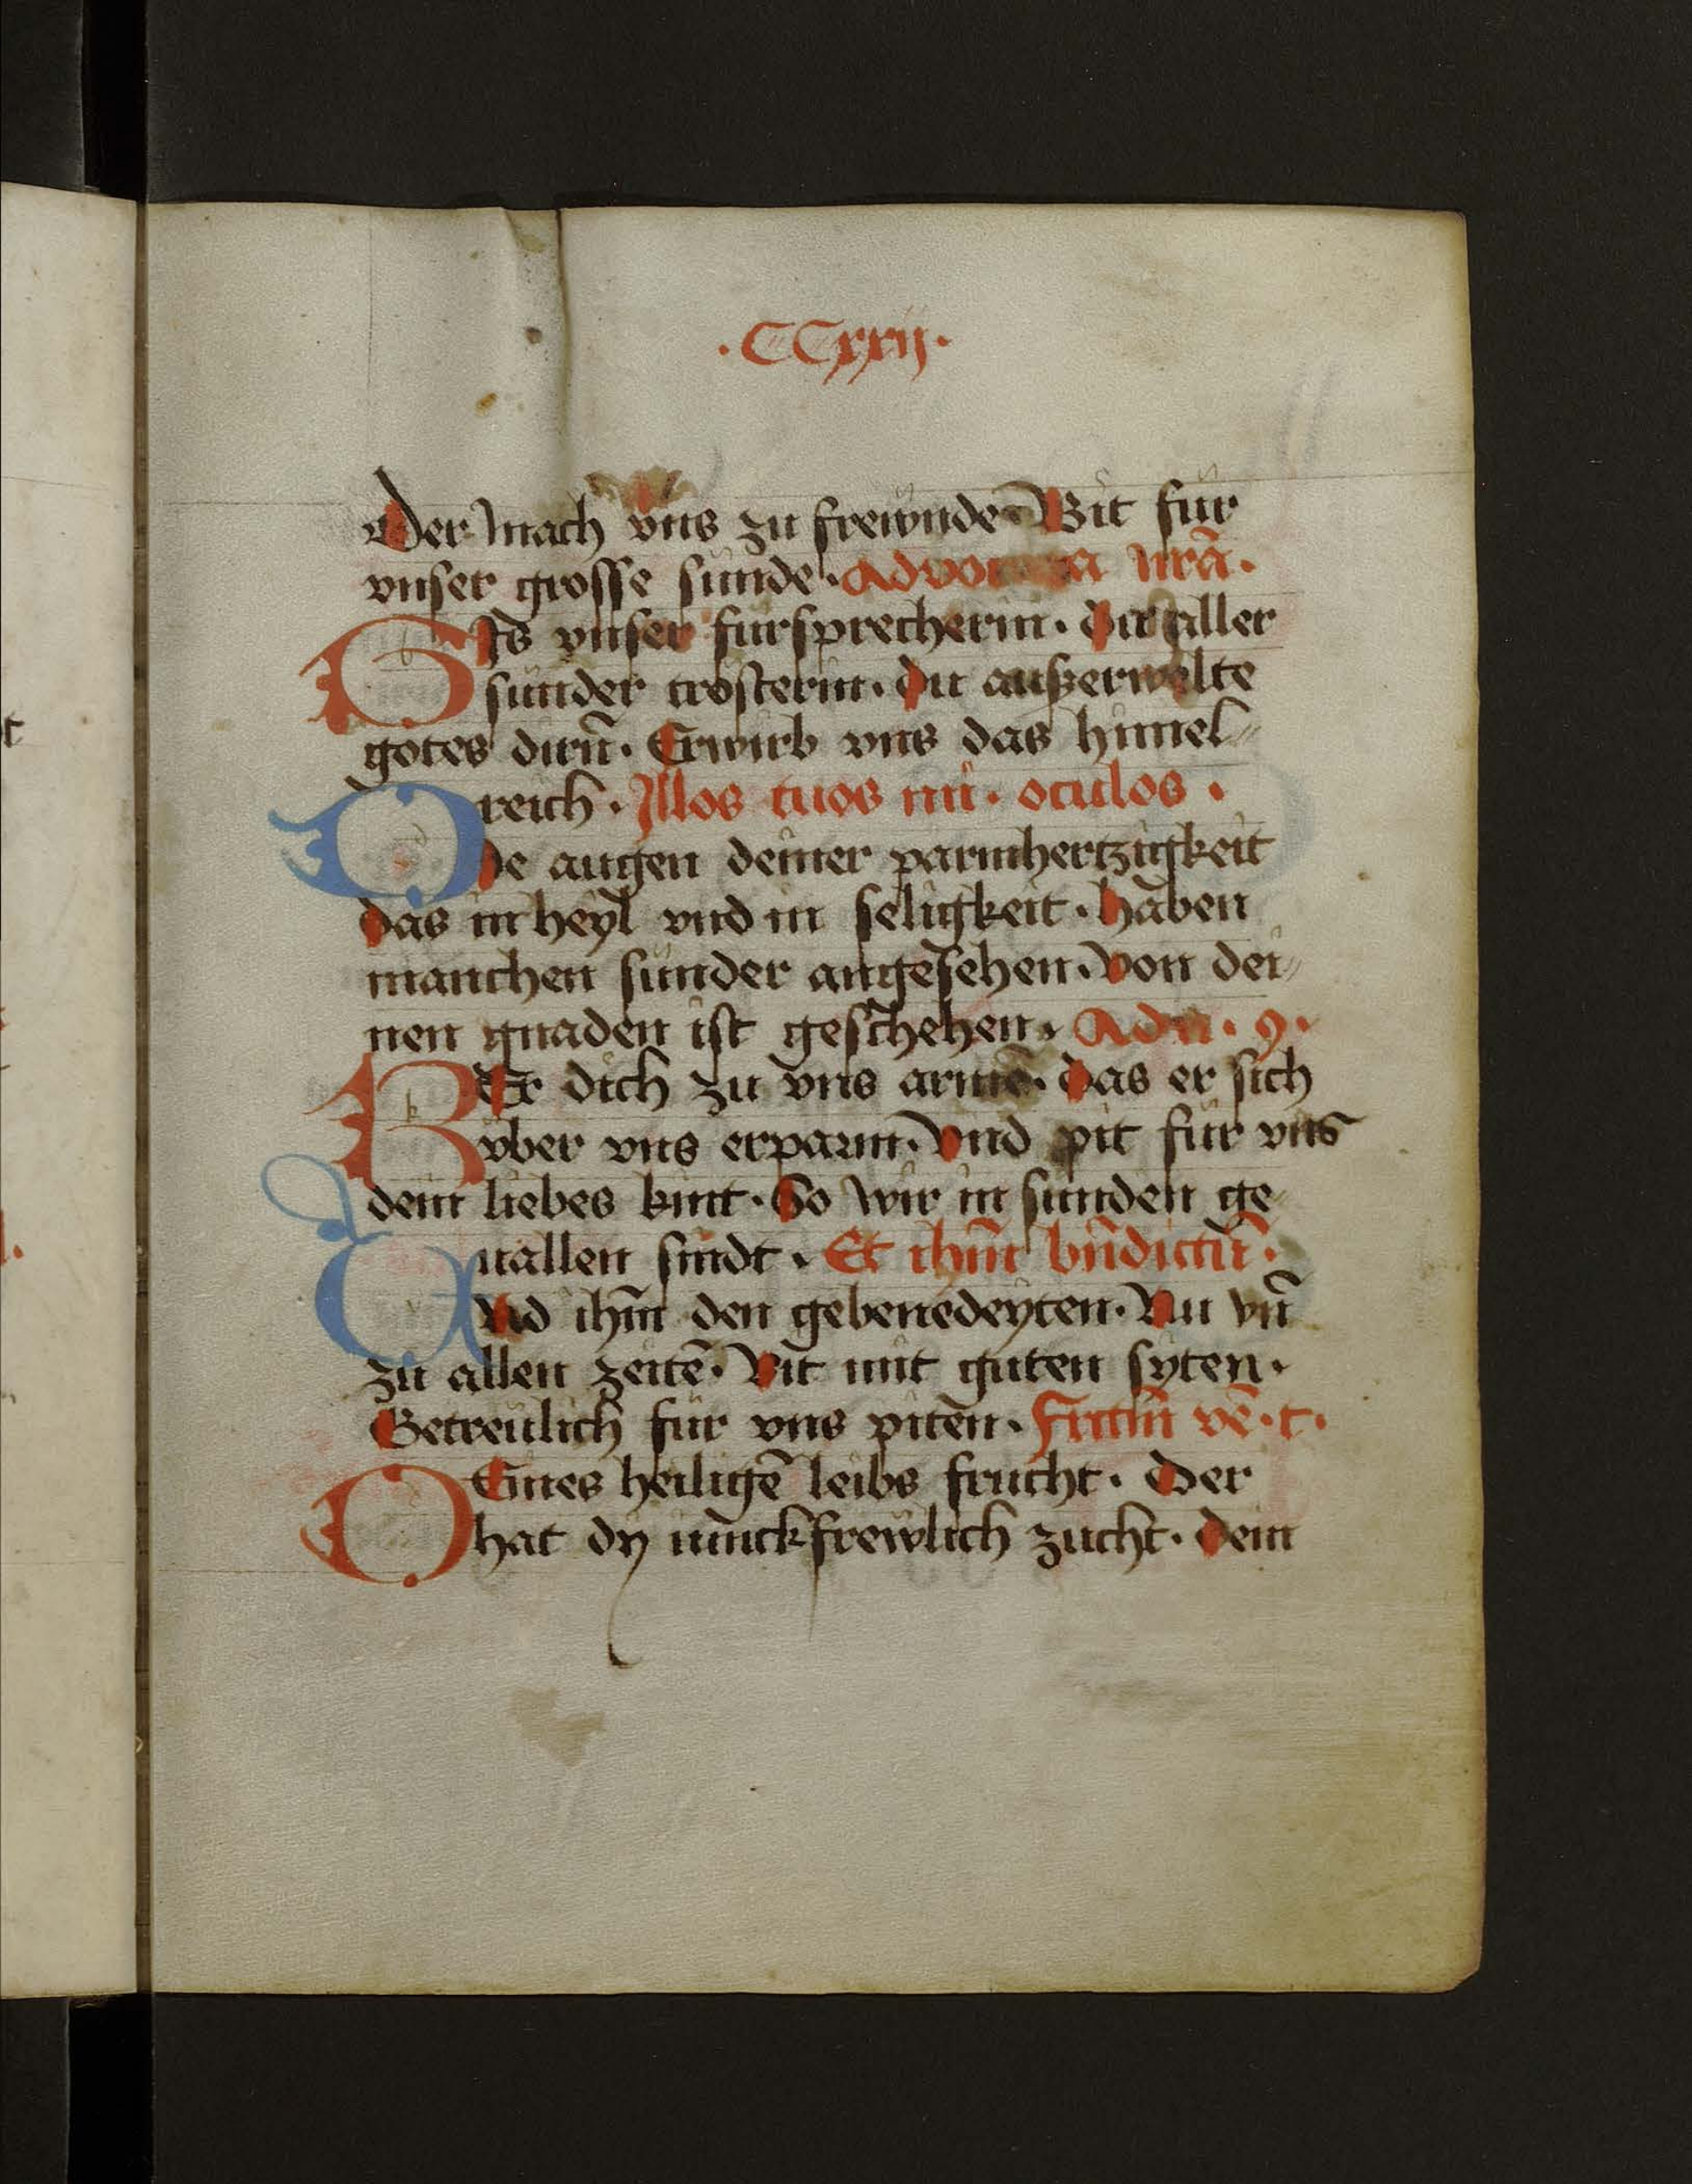 ·CCxxij·
Der mach vns zu frewnden Bit für
vnser grosse sünde· Advocata nrā·
BIs vnser fürsprecherin· du aller
sünder trösterin· du auszerwelte
gotes dirn̄· Erwirb vns das himel-
reich· Illos tuos mi· oculos·
DIe augen deiner parmhertzigkeit
das in heyl vnd in seligkeit· haben
manchen sünder angesehen· von dei-
nen gnaden ist geschehen· Ad n· 9·
KEr dich zu vns armē· das er sich
vber vns erparm· Vnd pit für vns
dein liebes kint· So wir in sünden ge
uallen sindt· Et ihm̄ bn̄dictū·
VNd ihm̄ den gebenedeyten· Nu vn̄
zu allen zeitē· Bit mit guten syten·
Getreülich für vns piten· Fructū vē·t·
DEines heiligē leibs frucht· Der
hat dy iunckfrewlich zücht· dein